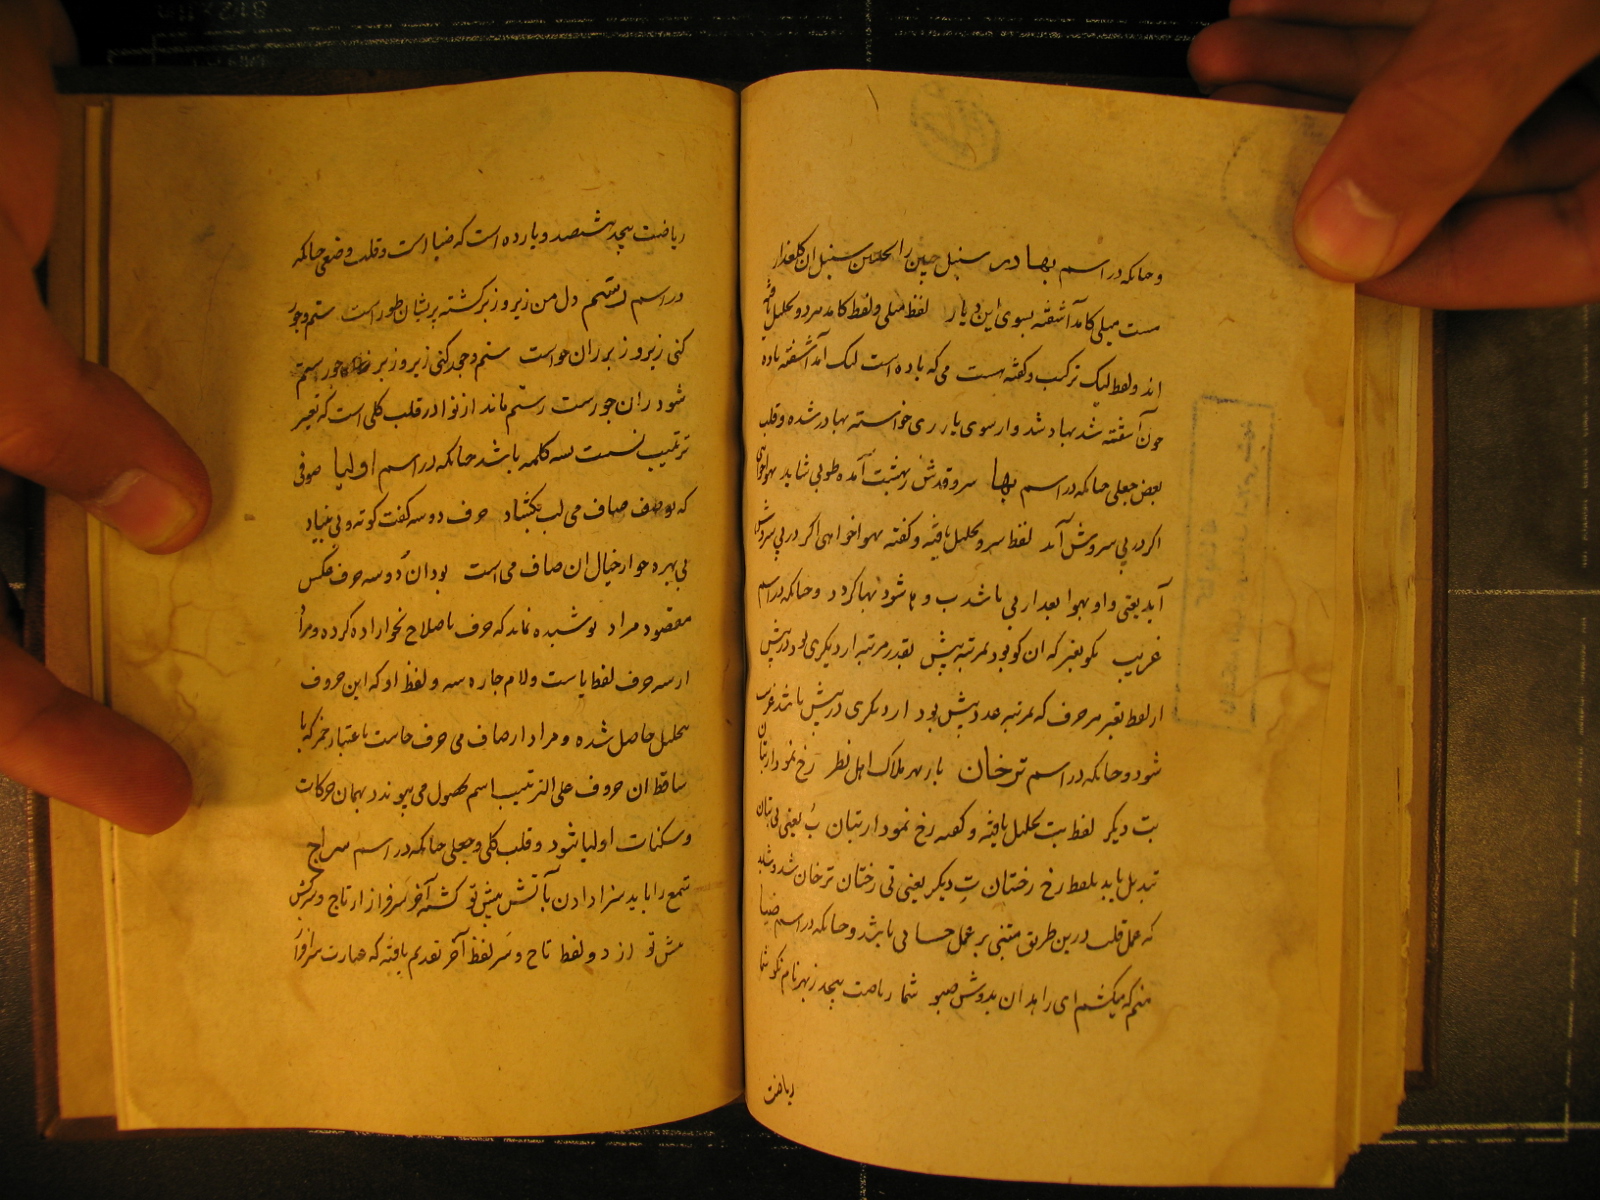 وحانکه در اسم بهادر سنبل چین را سنبل ان کلعذار
مست میلی کامد آشفته بسوی این دیار لفظ میلی ولفظ کامد وبحلیل یافته
اند ولفظ لیک ترکیب وکفته بست می که باده است لیک آمد آشفته باده
چون آشفته شد بهاد شد وارسوی یار ری خواسته بهادر شده وقلب
بعض جعلی حانکه در اسم بها سرو قدش ربهشت آمده طوبی شاید بهواخواهی
اکر در پی سروش آید لفظ سرو بحلیل یافته وکفته بهواخواهی اکر در پی سروش
آید یعنی واو بهوا بعد ار بی باشد ب و ها شود بها کردد وحانکه در اسم
غریب نکو بغیر که ان کو بود بمرتبه پیش بقدر مرتبه ار دیکری بود در پیش
ار لفظ بغیر هر حرف که بمرتبه عدد پیش بود ار دیکری در پیش باشد غریب
شود وحانکه در اسم ترخان بار بهر هلاک اهل نظر رخ نمود ار بتان
بت دیکر لفظ بت بحلیل یافته وکفته رخ نمود ار بتان ب یعنی بی بتان
تبدیل یابد بلفظ رخ رختان ت دیکر یعنی تی رختان ترخان شد
که عمل قلب درین طریق مبتنی بر عمل حسابی باشد وحانکه در اسم ضیا
منم که میکشم ای زاهدان بدوش صبو شما ریاضت بیجد ز بهر نام نکو شما
ریاضت
ریاضت بیجد هشتصد ویازده است که ضیا است وقلب وضعی حانکه
در اسم رستم دل من زیر وزبر کشته پریشان طور است ستم وجور
کنی زیر وزبر زان خواست ستم وجد کنی زیر وزبر جور ستم
شود ران جور ست رستم ماند از نوادر قلب کلی است که تغیر
ترتیب نسبت بسه کلمه باشد حانکه در اسم اولیا صوفی
که بوصف صاف می لب بکشاد حرف دو سه کفت کوته وبی بنیاد
بی بهره جو ار خیال ان صاف می است بود ان دو سه حرف عکس
مقصود مراد پوشیده نماند که حرف باصلاح نحو اراده کرده ومراد
ار سه حرف لفظ یا ست ولام جاره سه ولفظ او که این حروف
بحلیل حاصل شده ومراد ار صاف می حرف حاست باعتبار خمر که با
ساقط ان حروف علی الترتیب اسم بحصول می پیوندد بهمان حرکات
وسکنات اولیا شود وقلب کلی وجعلی حانکه در اسم سراج
شمع را باید سزا دادن بآتش پیش تو کشته آخر سرفراز ار تاج وسرکش
پیش تو از دو لفظ تاج وسر لفظ آخر تقدیم یافته که عبارت